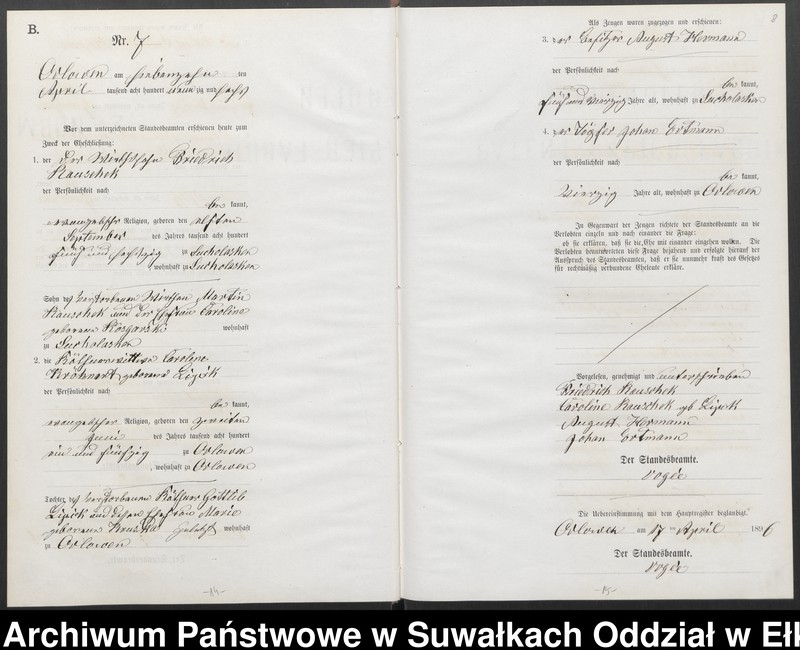 B.
Nr. 7
Orlowen am siebenzehn ten
April tausend acht hundert neun zig und sechs
Vor dem unterzeichneten Standesbeamten erschienen heute zum
Zweck der Eheschließung:
1. der der Wirthssohn Friedrich
Rauschek
der Persönlichkeit nach
be kannt,
evangelischer Religion, geboren den elften
September des Jahres tausend acht hundert
fünf und sechszig zu Sucholasken
wohnhaft zu Sucholasken
Sohn des verstorbenen Martin
Rauschek und der Ehefrau Caroline
geborenen wohnhaft
zu Sucholasken
2. die Käthnerwittwe Caroline
geborene Lipick
der Persönlichkeit nach
be kannt,
evangelischer Religion, geboren den zweiten
Juni des Jahres tausend acht hundert
ein und fünfzig zu Orlowen
, wohnhaft zu Orlowen
Tochter des verstorbenen Käthner Gottlieb
Lipick und dessen Ehefrau Marie
geborenen zuletzt wohnhaft
zu Orlowen
-14-
8
Als Zeugen waren zugezogen und erschienen:
3. der Besitzer August Hermann
der Persönlichkeit nach
be kannt,
fünf und vierzig Jahre alt, wohnhaft zu Sucholasken
4. der Töpfer Johan Ertmann
der Persönlichkeit nach
be kannt,
vierzig Jahre alt, wohnhaft zu Orlowen
In Gegenwart der Zeugen richtete der Standesbeamte an die
Verlobten einzeln und nach einander die Frage:
ob sie erklären, daß sie die Ehe mit einander eingehen wollen. Die
Verlobten beantworteten diese Frage bejahend und erfolgte hierauf der
Ausspruch des Standesbeamten, daß er sie nunmehr kraft des Gesetzes
für rechtmäßig verbundene Eheleute erkläre.
Vorgelesen, genehmigt und unterschrieben
Friedrich Rauschek
Caroline Rauschek gb Lipick
August Hermann
Johan Ertmann
Der Standesbeamte.
Vogée
Die Uebereinstimmung mit dem Hauptregister beglaubigt
Orlowen am 17 ten April 1896
Der Standesbeamte.
Vogée
-15-
Archiwum Państwowe w Suwałkach Oddział w Ełk